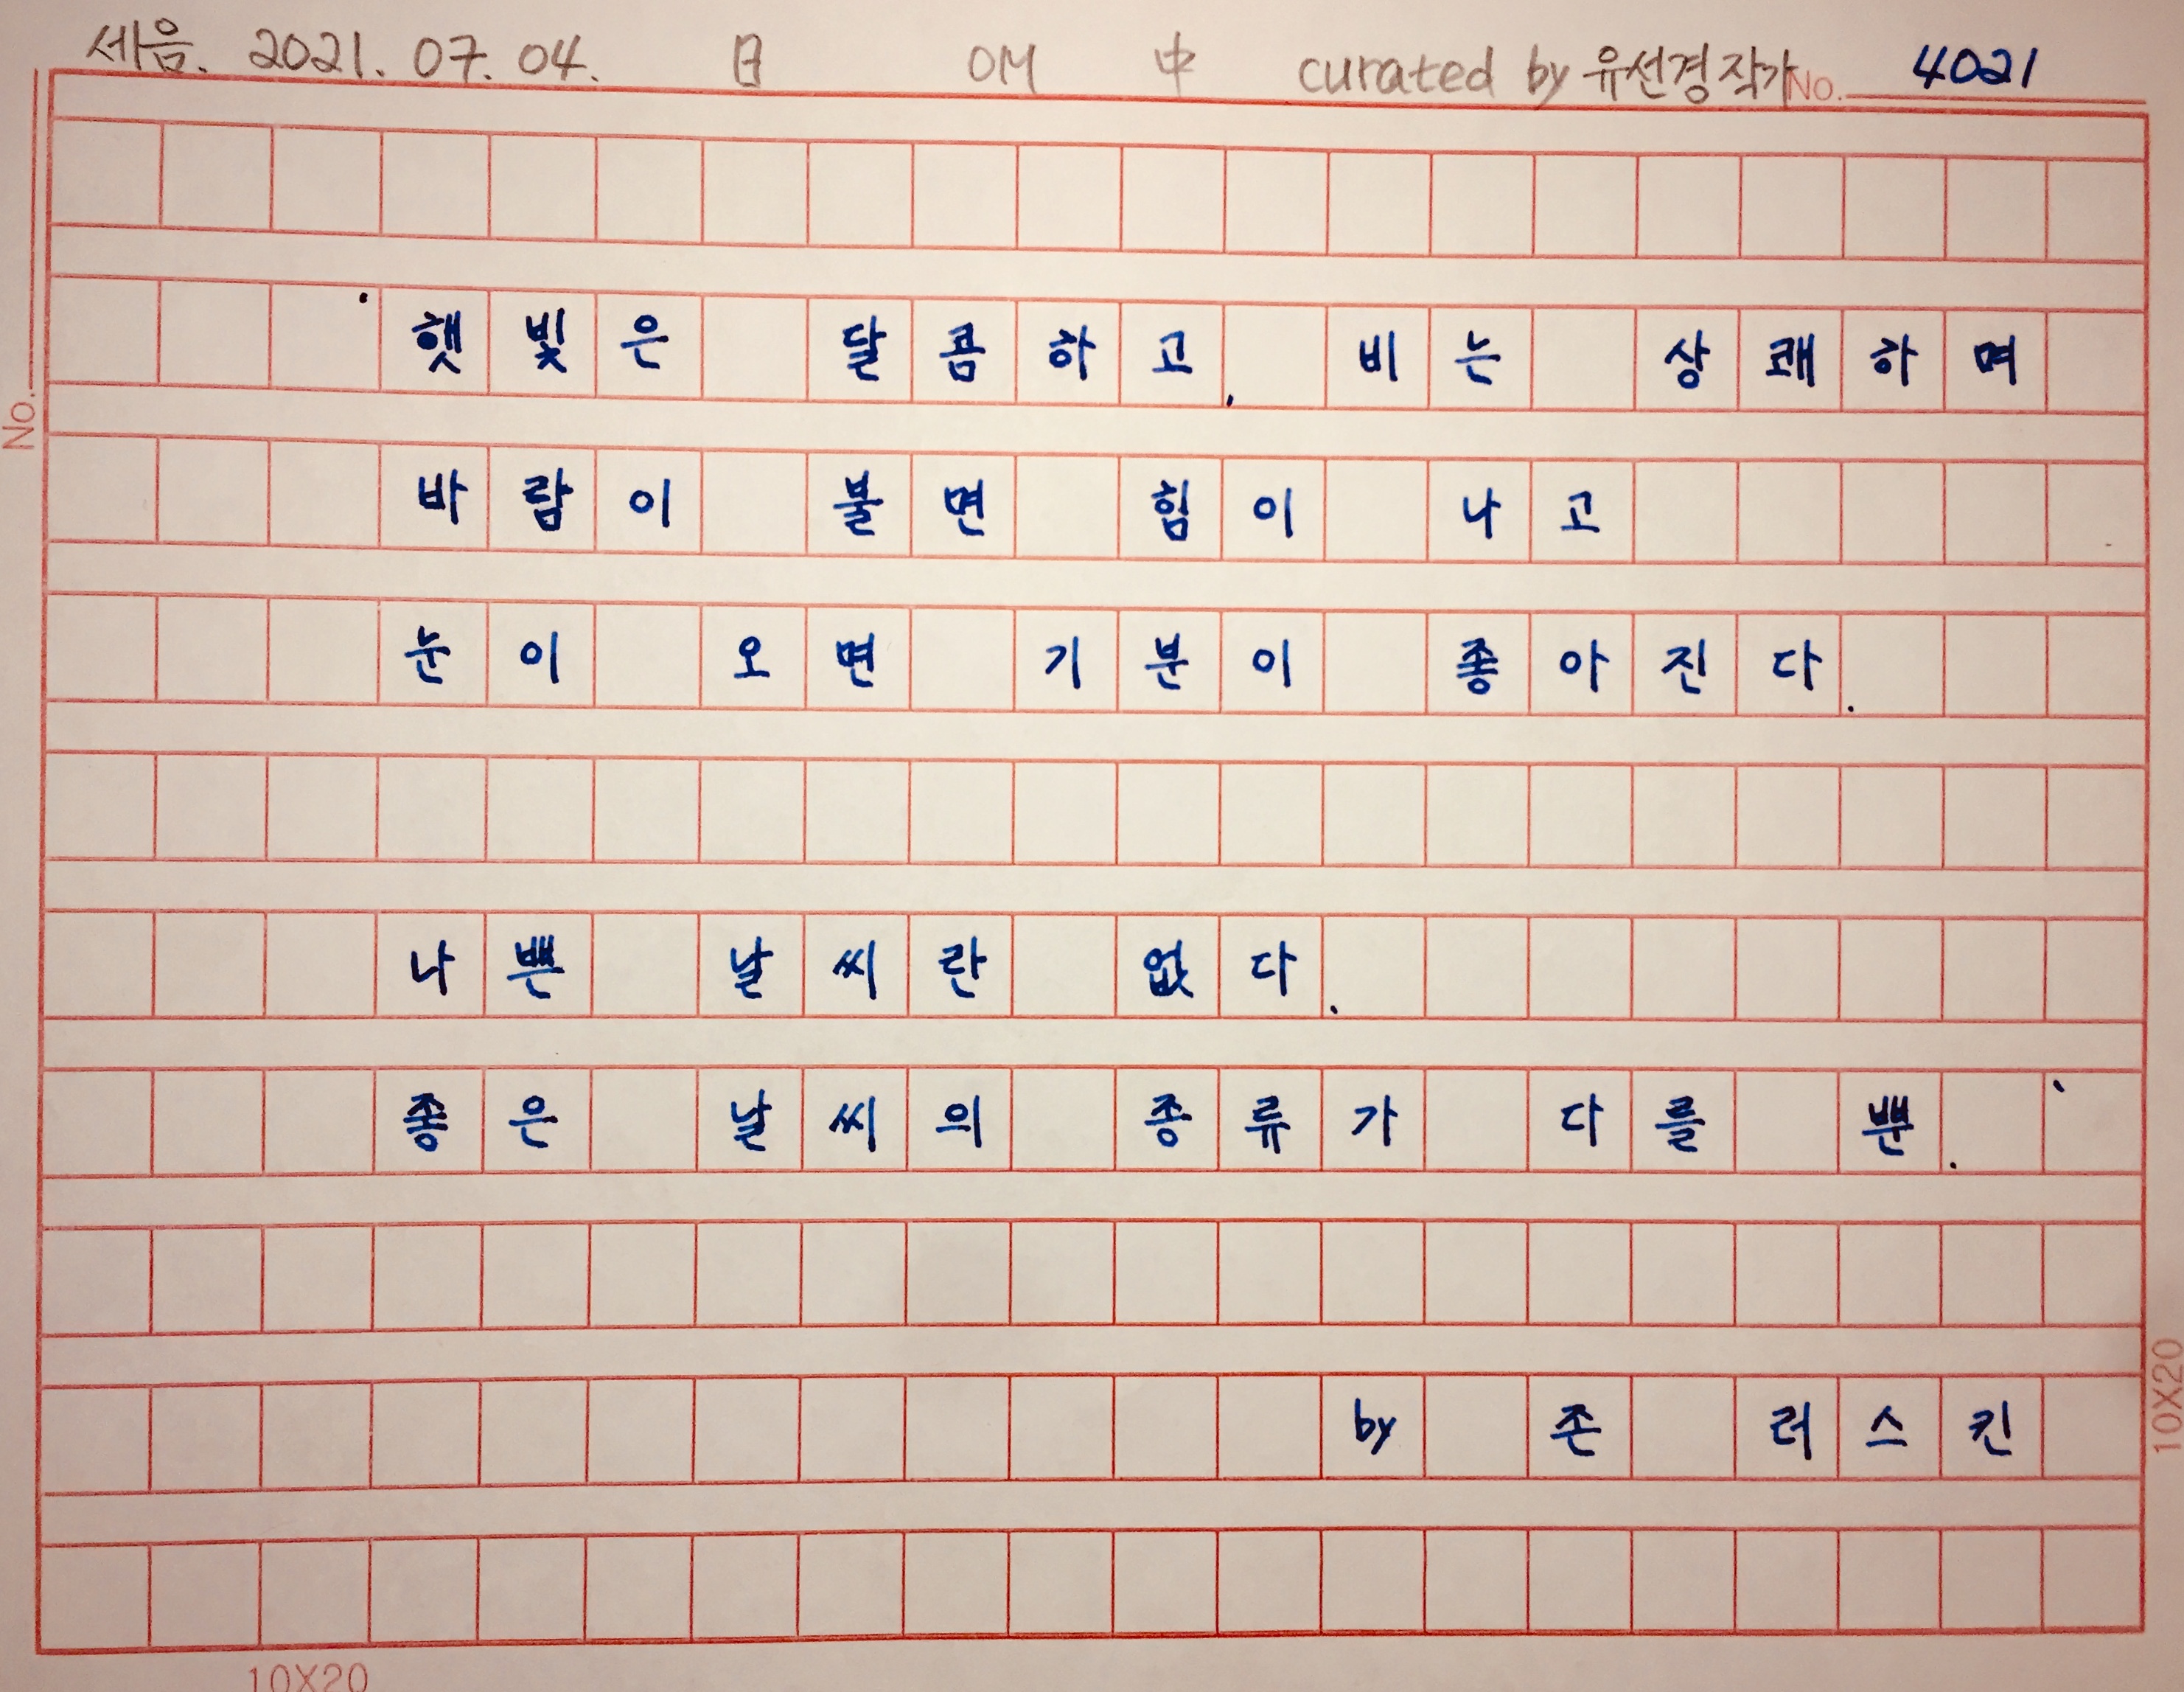 세음. 2021. 07. 04. 日 OM 中 curated by 유선경 작가 No. 4021
No.
'햇빛은 달콤하고, 비는 상쾌하며
바람이 불면 힘이 나고
눈이 오면 기분이 좋아진다.
나쁜 날씨란 없다.
좋은 날씨의 종류가 다를 뿐.'
by 존 러스킨
10X20
10X20